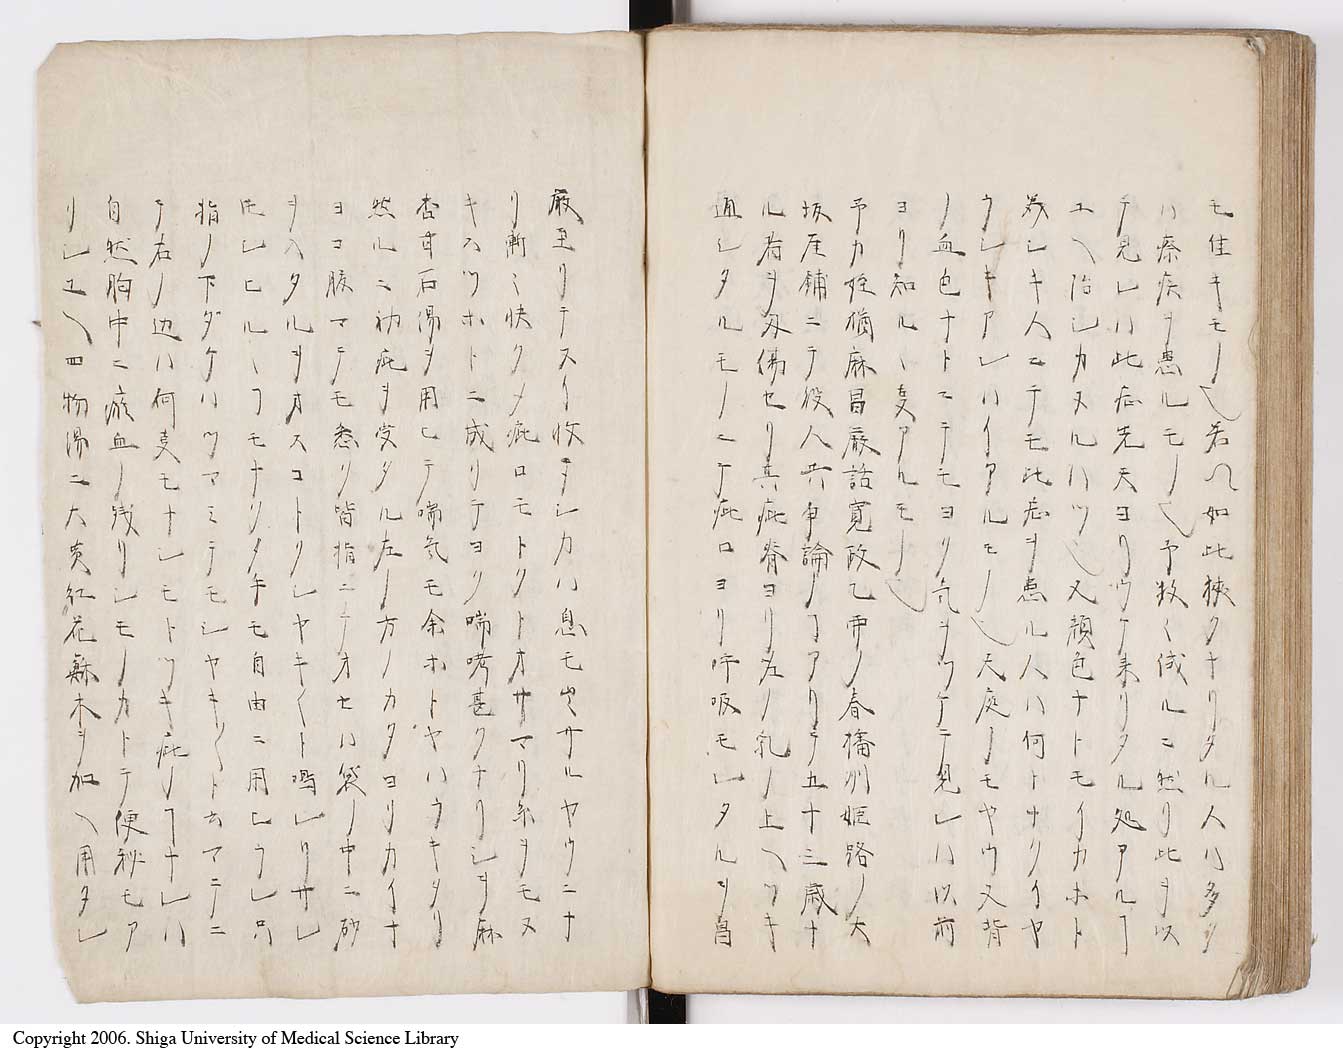 モ住キモノ也若シ如此狭クナリタル人ハ多クハ
ハ瘵疾ヲ患ルモノ也予救々試ルニ然リ此ヲ以
テ見レハ此症先天ヨリウケ来リタル処アルヿ
ユヘ治シカヌルハツ也又顔色ナトモイカホト
美シキ人ニテモ此症ヲ患ル人ハ何トナクイヤ
ラシキアシハイアルモノ也天庭ノモヤウ又背
ノ血色ナトニテモヨク気ヲツケテ見レハ以前
ヨリ知ルヽ支アルモノ也
予カ姪猶麻昌厳話寛政乙卯ノ春播州姫路ノ大
坂屋鋪ニテ役人共争論ノヿアリテ五十三歳ナ
ル者ヲ刄傷セリ其疵脊ヨリ左ノ乳ノ上ヘツキ
通シタルモノニテ疵口ヨリ呼吸モレタルヲ昌
厳至リテスイ收ヲシカハ息モ出サルヤウニナ
リ漸々快クメ疵口モトクトオサマリ糸ヲモヌ
キスツホトニ成リテヨク喘咳甚クナリシヲ麻
杏甘石湯ヲ用ヒテ喘気モ余ホトヤハラキタリ
然ルニ初疵ヲ受タル左ノ方ノカタヨリカイナ
ヨコ腹マテモ悉ク皆指ニテオセハ袋ノ中ニ砂
ヲ入タルヲオスコトクシヤキ〱ト鳴レリサレ
𪜈シヒルヽヿモナク夕手モ自由ニ用ヒラレ只
指ノ下ダケハツマミテモシヤキ〱ト云マテニ
テ右ノ辺ハ何支モナシモトツキ疵ノヿナレハ
自然胸中ニ瘀血ノ残リシモノカトテ便秘モア
リシユヘ四物湯ニ大黄紅花蘇木ヲ加ヘ用タレ
Copyright 2006. Shiga University of Medical Science Library